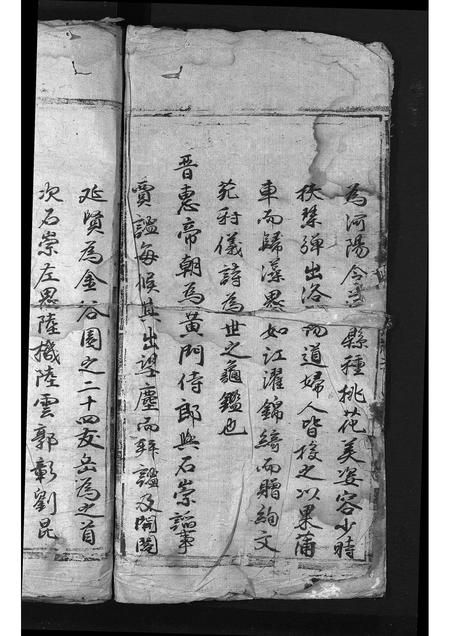 為河陽令 縣種桃花美姿容少時
挾彈出洛陽道婦人皆投之以果滿
車而歸藻思如江濯錦綺而贈絢文
苑行儀詩為世之龜鑑也
晋惠帝朝為黃門侍郎與石崇謟事
賈謐每候其出望塵而拜謐及開閤
延賓為金谷園之二十四友岳為之首
次石崇左思陸機陸雲郭彰劉昆